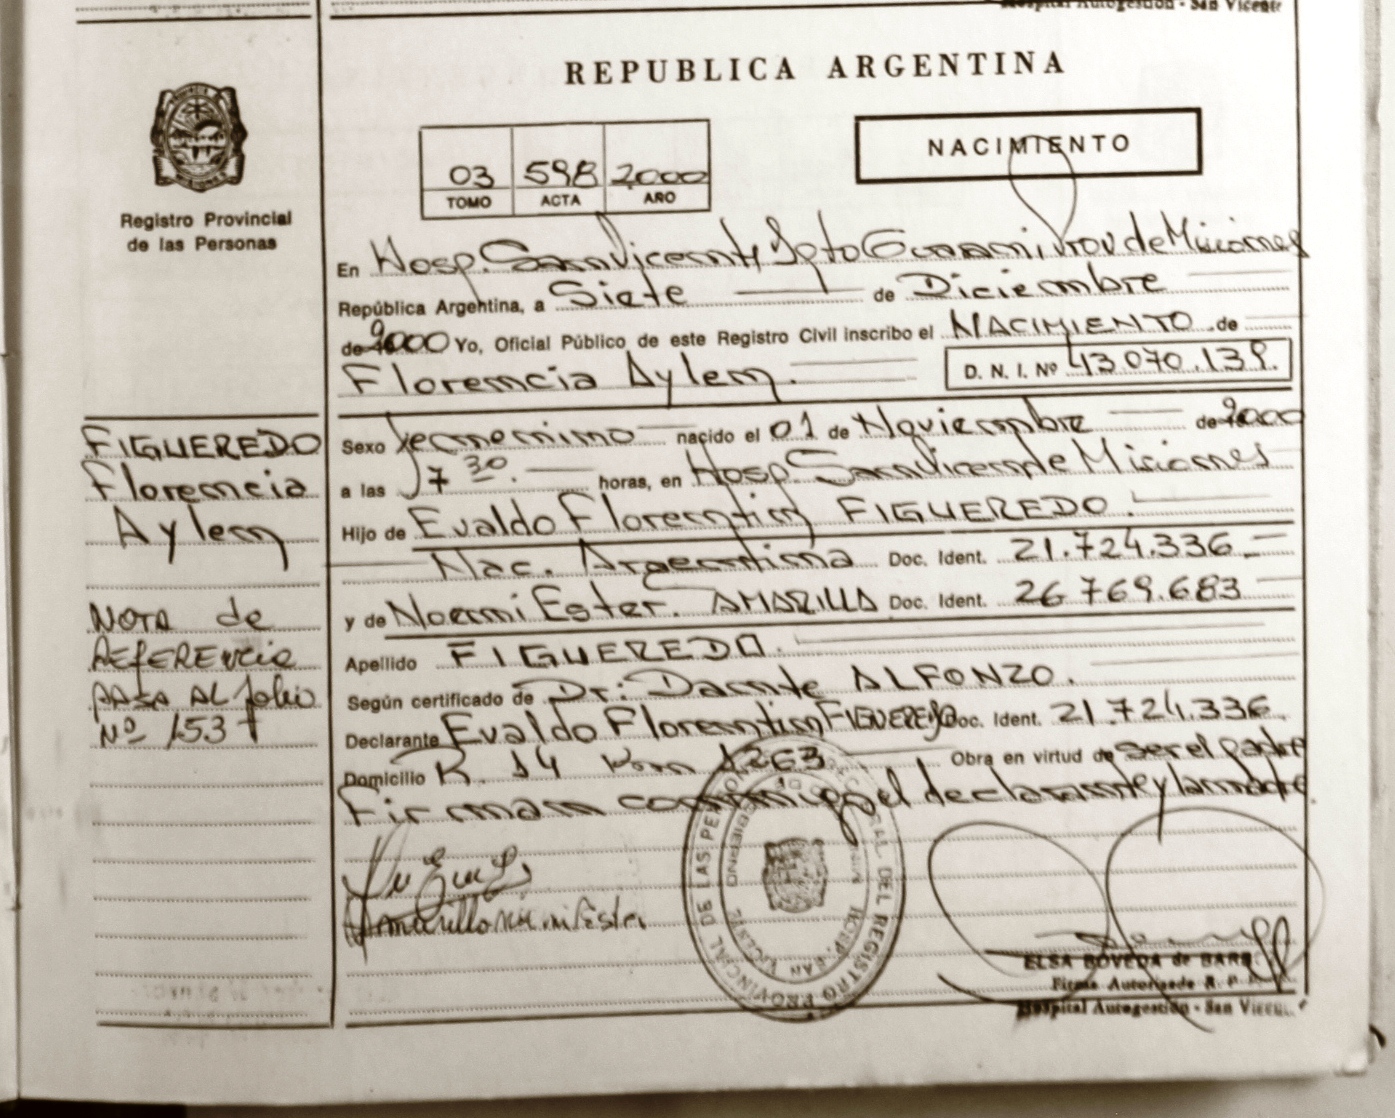 Hospital Autogestión - San Vicente
REPUBLICA ARGENTINA
NACIMIENTO
03 598 2000
TOMO ACTA AÑO
Registro Provincial
de las Personas
En Hosp. San Vicente, Dpto Guaraní, Prov de Misiones
República Argentina, a Siete de Diciembre
de 2000 Yo, Oficial Público de este Registro Civil inscribo el NACIMIENTO de
Florencia Aylen. D. N. I. Nº 43.070.139.
Sexo femenino nacido el 01 de Noviembre de 2000
a las 17 30 horas, en Hosp. San Vicente Misiones
Hijo de Evaldo Florentin FIGUEREDO.
Nac. Argentina Doc. Ident. 21.724.336
y de Noemi Ester. AMARILLA Doc. Ident. 26 769.683
Apellido FIGUEREDO.
Según certificado de Dr: Dante ALFONZO.
Declarante Evaldo Florentin FIGUEREDO Doc. Ident. 21.724.336
Domicilio R. 14 Km 1263 Obra en virtud de ser el padre
Firman conmigo el declarante y la madre.
FIGUEREDO
Florencia
Aylen
NOTA de
REFERENCIA
PASA AL folio
Nº 153
PROVINCIAL DE LAS PERSONAS
DEL REGISTRO
HOSP. SAN VICENTE
ELSA BOVEDA de BARB
Firma Autorizada R. P.
Hospital Autogestión - San Vicen